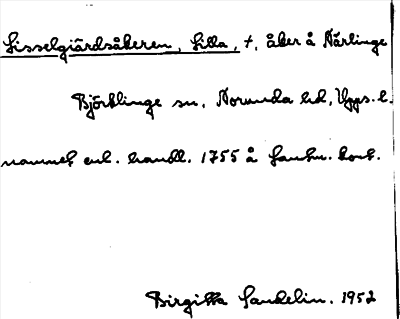 Sisselgiärdsåkeren, Lilla, †, åker å Närlinge
Björklinge sn, Norunda hd, Upps. l.
namnet enl. handl. 1755 å lantm. kont.
Birgitta Sandelin. 1952